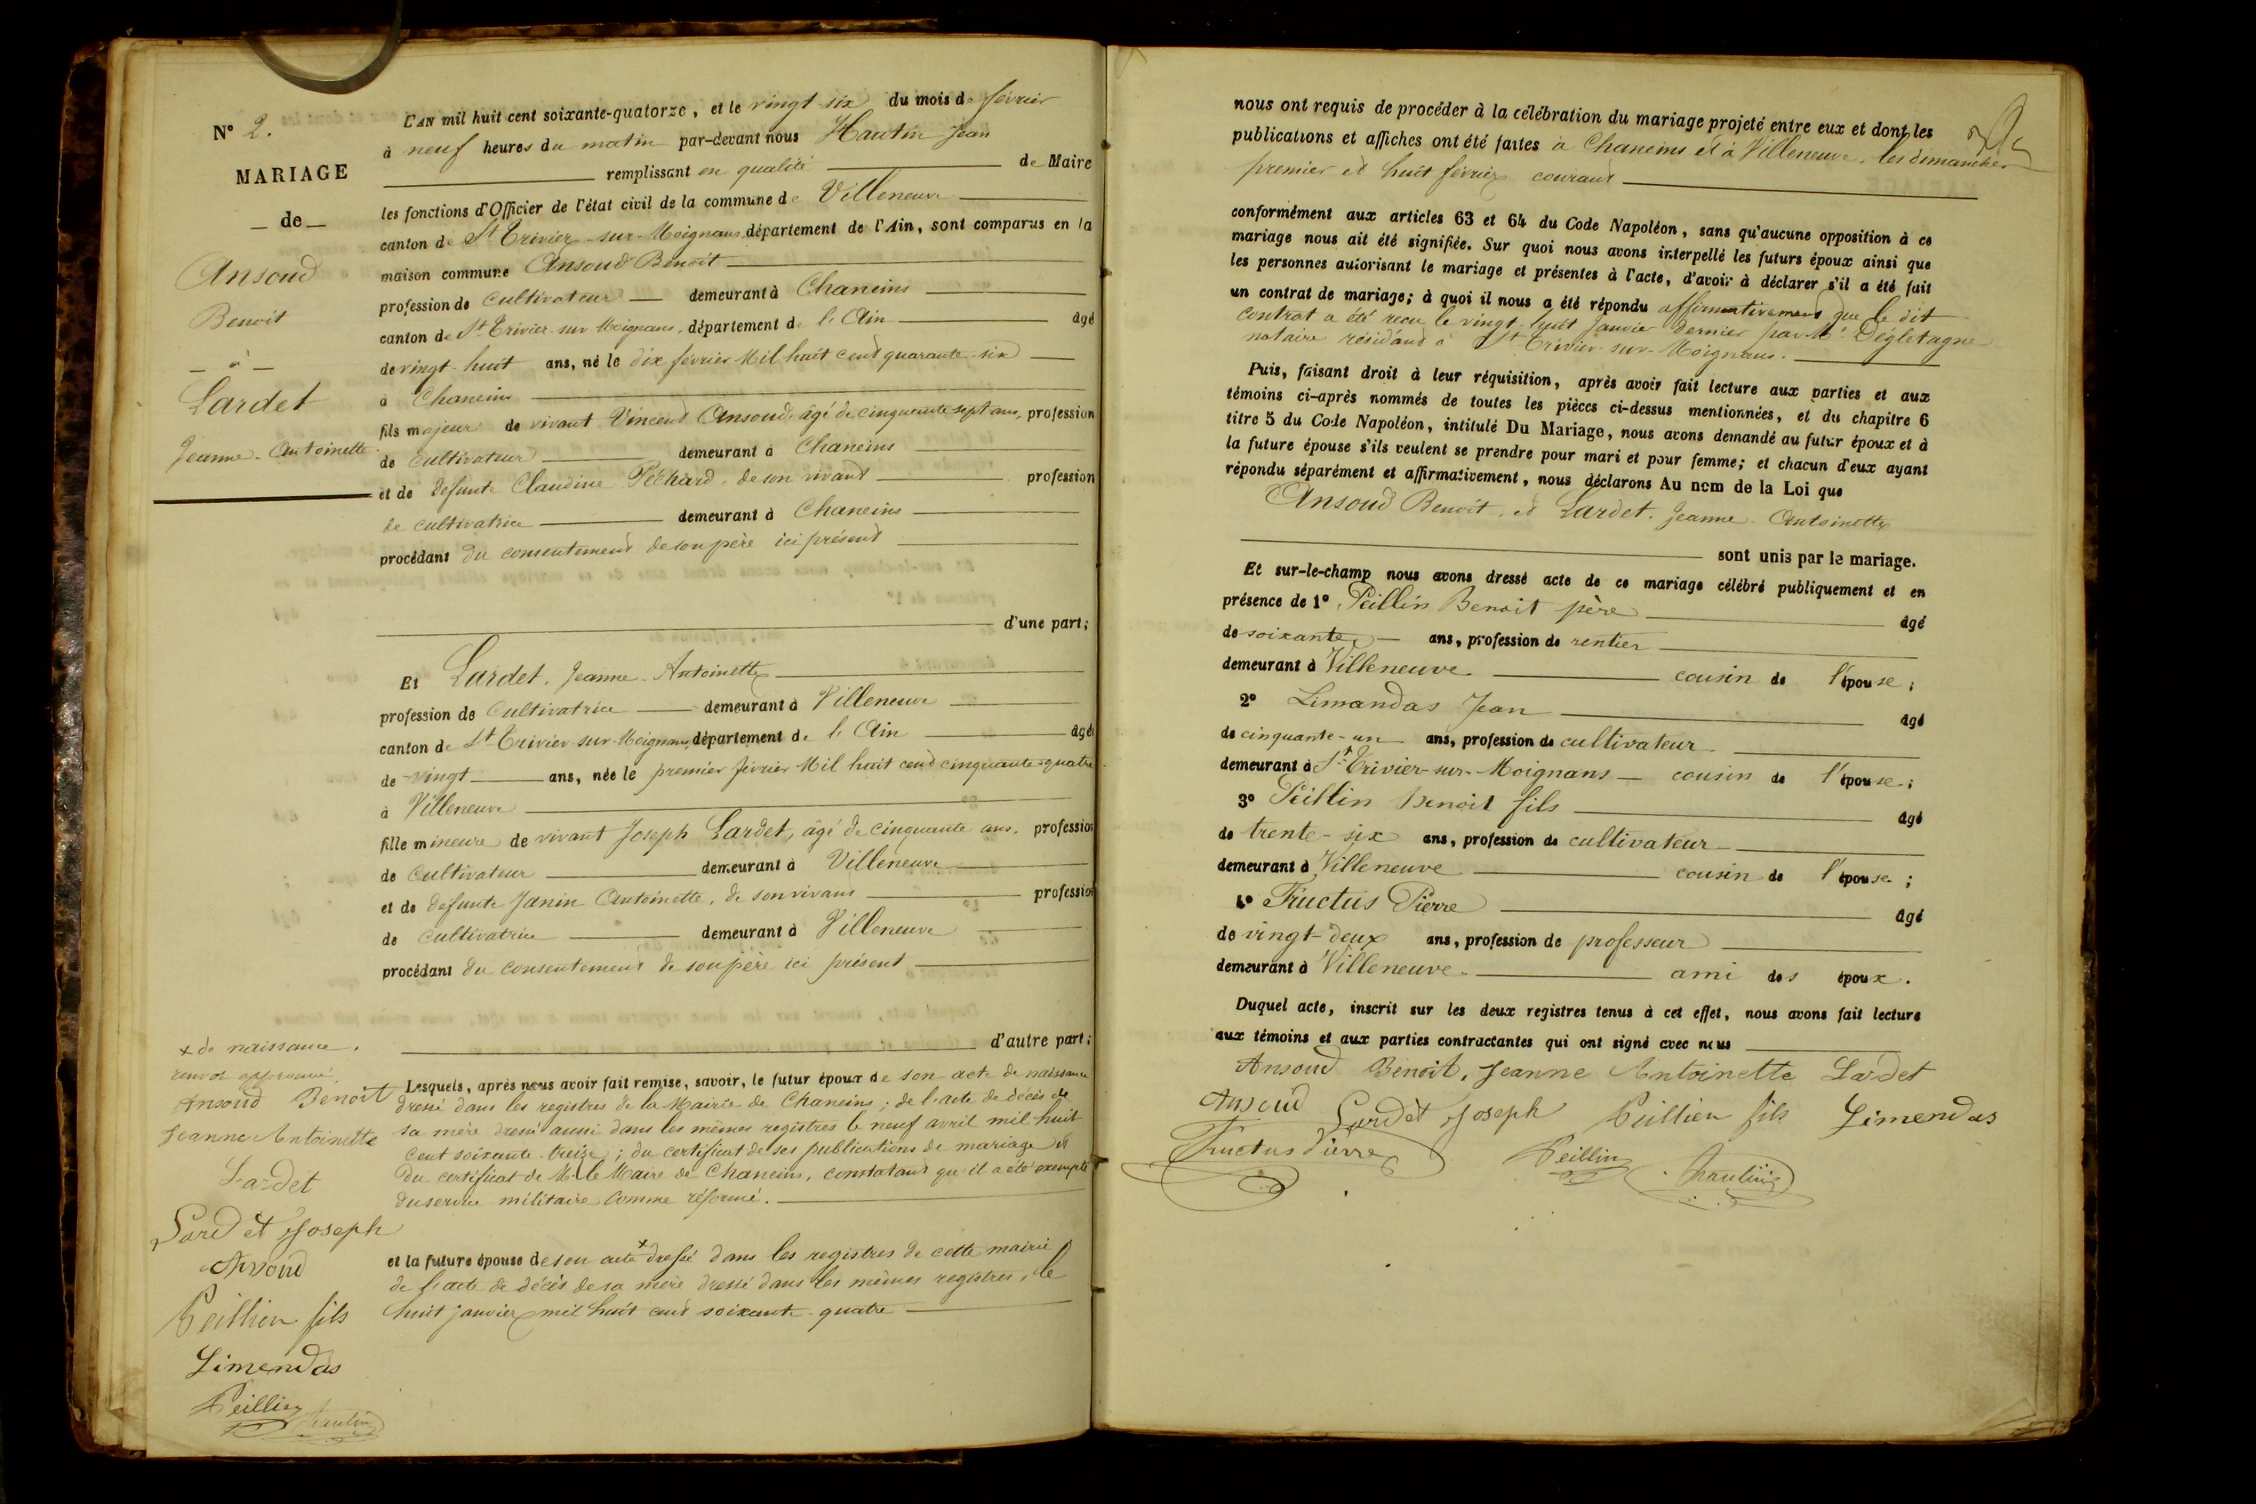 N° 2.
MARIAGE
de
Ansoud
Benoit
et
Lardet
Jeanne-Antoinette
L'AN mil huit cent soixante-quatorze, et le vingt six du mois de février
à neuf heures du matin par-devant nous Hautin Jean
remplissant en qualité de Maire
les fonctions d'Officier de l'état civil de la commune de Villeneuve
canton de St Trivier-sur-Moignans département de l'Ain, sont comparus en la
maison commune Ansoud Benoit
profession de cultivateur demeurant à Chaneins
canton de St Trivier sur Moignans, département de l'Ain âgé
de vingt-huit ans, né le dix février Mil huit cent quarante-six
à Chaneins
fils majeur de vivant Vincent Ansoud, âgé de cinquante sept ans, profession
de cultivateur demeurant à Chaneins
et de defunte Claudine Péchard, de son vivant profession
de cultivatrice demeurant à Chaneins
procédant du consentement de son père ici présent
d'une part;
Et Lardet, Jeanne-Antoinette
profession de Cultivatrice demeurant à Villeneuve
canton de St Trivier sur Moignans département de l'Ain âgé
de vingt ans, née le premier février Mil huit cent cinquante-quatre
à Villeneuve
fille mineure de vivant Joseph Lardet, âgé de cinquante ans, profession
de Cultivateur demeurant à Villeneuve
et de defunte Janin Antoinette, de son vivant profession
de cultivatrice demeurant à Villeneuve
procédant du consentement de son père ici présent
d'autre part;
Lesquels, après nous avoir fait remise, savoir, le futur époux de son acte de naissance
dressé dans les registres de la Mairie de Chaneins; de l'acte de décès de
sa mère dressé aussi dans les mêmes registres le neuf avril mil huit
cent soixante-treize; du certificat de ses publications de mariage et
du certificat de Mr le Maire de Chaneins, constatant qu'il a été exempté
du service militaire comme réformé.
et la future épouse de son acte x dressé dans les registres de cette mairie
de l'acte de décès de sa mère dressé dans les mêmes registres, le
huit janvier mil huit cent soixante-quatre
x de naissance.
renvoi approuvé
Ansoud Benoit
Jeanne Antoinette
Lardet
Lardet Joseph
Ansoud
Peillien fils
Limendas
Peillin
Hautin
nous ont requis de procéder à la célébration du mariage projeté entre eux et dont les
publications et affiches ont été faites à Chaneins et à Villeneuve, les dimanches
premier et huit février courant
conformément aux articles 63 et 64 du Code Napoléon, sans qu'aucune opposition à ce
mariage nous ait été signifiée. Sur quoi nous avons interpellé les futurs époux ainsi que
les personnes autorisant le mariage et présentes à l'acte, d'avoir à déclarer s'il a été fait
un contrat de mariage; à quoi il nous a été répondu affirmativement que le dit
contrat a été reçu le vingt-huit janvier dernier par Me Dégletagne
notaire résidant à St Trivier-sur-Moignans.
Puis, faisant droit à leur réquisition, après avoir fait lecture aux parties et aux
témoins ci-après nommés de toutes les pièces ci-dessus mentionnées, et du chapitre 6
titre 5 du Code Napoléon, intitulé Du Mariage, nous avons demandé au futur époux et à
la future épouse s'ils veulent se prendre pour mari et pour femme; et chacun d'eux ayant
répondu séparément et affirmativement, nous déclarons Au nom de la Loi que
Ansoud Benoit, et Lardet, Jeanne-Antoinette
sont unis par le mariage.
Et sur-le-champ nous avons dressé acte de ce mariage célébré publiquement et en
présence de 1° Peillin Benoit père âgé
de soixante ans, profession de rentier
demeurant à Villeneuve cousin de l'épouse;
2° Limandas Jean âgé
de cinquante-un ans, profession de cultivateur
demeurant à St Trivier-sur-Moignans cousin de l'épouse;
3° Peillin Benoit fils âgé
de trente-six ans, profession de cultivateur
demeurant à Villeneuve cousin de l'épouse;
4° Fructus Pierre âgé
de vingt-deux ans, profession de professeur
demeurant à Villeneuve ami des époux.
Duquel acte, inscrit sur les deux registres tenus à cet effet, nous avons fait lecture
aux témoins et aux parties contractantes qui ont signé avec nous
Ansoud Benoit, Jeanne Antoinette Lardet
Ansoud Lardet Joseph Peillien fils Limendas
Fructus Pierre Peillin Hautin